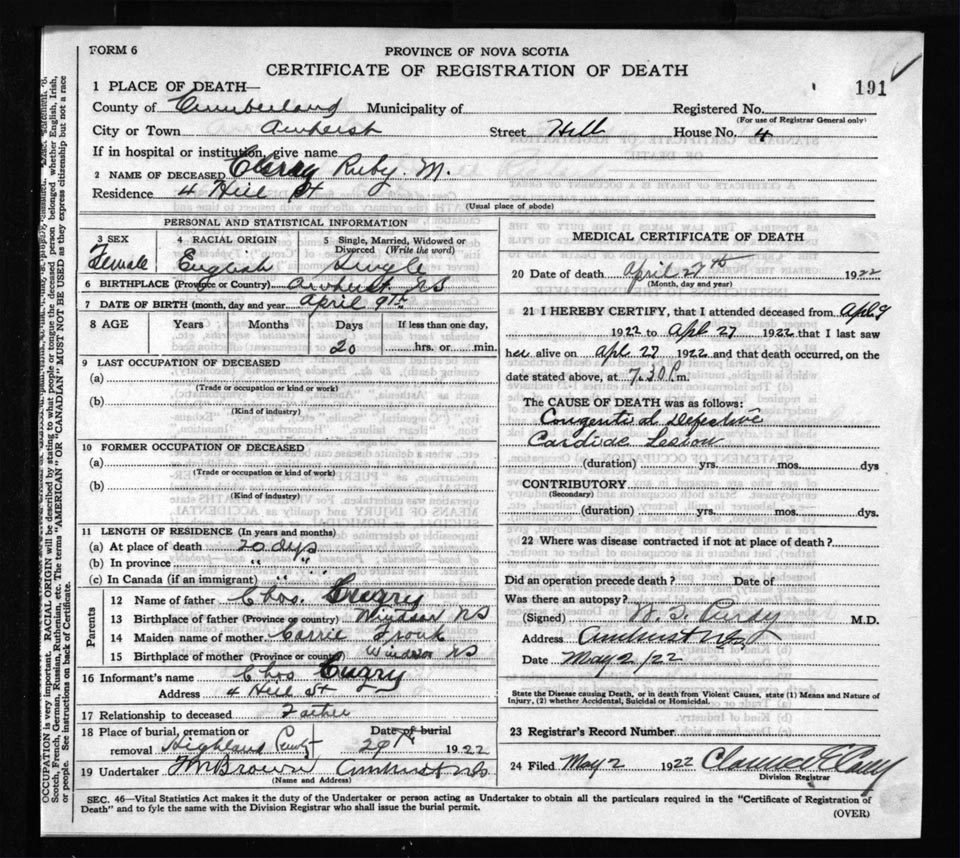 FORM 6
PROVINCE OF NOVA SCOTIA
CERTIFICATE OF REGISTRATION OF DEATH
191
1 PLACE OF DEATH—
County of Cumberland Municipality of Registered No.
(For use of Registrar General only)
City or Town Amherst Street Hill House No. 4
If in hospital or institution, give name
2 NAME OF DECEASED Ruby. M.
Residence 4 Hill St
(Usual place of abode)
PERSONAL AND STATISTICAL INFORMATION
3 SEX 4 RACIAL ORIGIN 5 Single, Married, Widowed or
Divorced (Write the word)
Female English Single
6 BIRTHPLACE (Province or Country) Amherst NS
7 DATE OF BIRTH (month, day and year) April 9th
8 AGE Years Months Days If less than one day,
20 hrs. or min.
9 LAST OCCUPATION OF DECEASED
(a)
(Trade or occupation or kind or work)
(b)
(Kind of industry)
10 FORMER OCCUPATION OF DECEASED
(a)
(Trade or occupation or kind of work)
(b)
(Kind of industry)
11 LENGTH OF RESIDENCE (In years and months)
(a) At place of death 20 dys
(b) In province " "
(c) In Canada (if an immigrant) " "
Parents
12 Name of father Chos.
13 Birthplace of father (Province or country) Windsor NS
14 Maiden name of mother Carrie
15 Birthplace of mother (Province or country) Windsor NS
16 Informant's name Chos
Address 4 Hill St
17 Relationship to deceased Father
18 Place of burial, cremation or Date of burial
removal Highland 29 1922
19 Undertaker Brown Amherst NS
(Name and Address)
MEDICAL CERTIFICATE OF DEATH
20 Date of death April 27th 1922
(Month, day and year)
21 I HEREBY CERTIFY, that I attended deceased from Apl 9
1922 to Apl 27 1922 that I last saw
her alive on Apl 27 1922 and that death occurred, on the
date stated above, at 7.30 P m.
The CAUSE OF DEATH was as follows:
Congenital Defective
Cardiac Lesion
(duration) yrs. mos. dys
CONTRIBUTORY
(Secondary)
(duration) yrs. mos. dys.
22 Where was disease contracted if not at place of death?
Did an operation precede death? Date of
Was there an autopsy?
(Signed) Purdy M.D.
Address Amherst NS
Date May 2/22
State the Disease causing Death, or in death from Violent Causes, state (1) Means and Nature of
Injury, (2) whether Accidental, Suicidal or Homicidal.
23 Registrar's Record Number
24 Filed May 2 1922 Clarence
Division Registrar
SEC. 46—Vital Statistics Act makes it the duty of the Undertaker or person acting as Undertaker to obtain all the particulars required in the "Certificate of Registration of
Death" and to fyle the same with the Division Registrar who shall issue the burial permit.
(OVER)
OCCUPATION is very important. RACIAL ORIGIN will be described by stating to what people or tongue the deceased person belonged whether English, Irish,
Scotch, French, German, Russian, Ruthenian, etc. The terms "AMERICAN" OR "CANADIAN" MUST NOT BE USED as they express citizenship but not a race
or people. See instructions on back of Certificate.